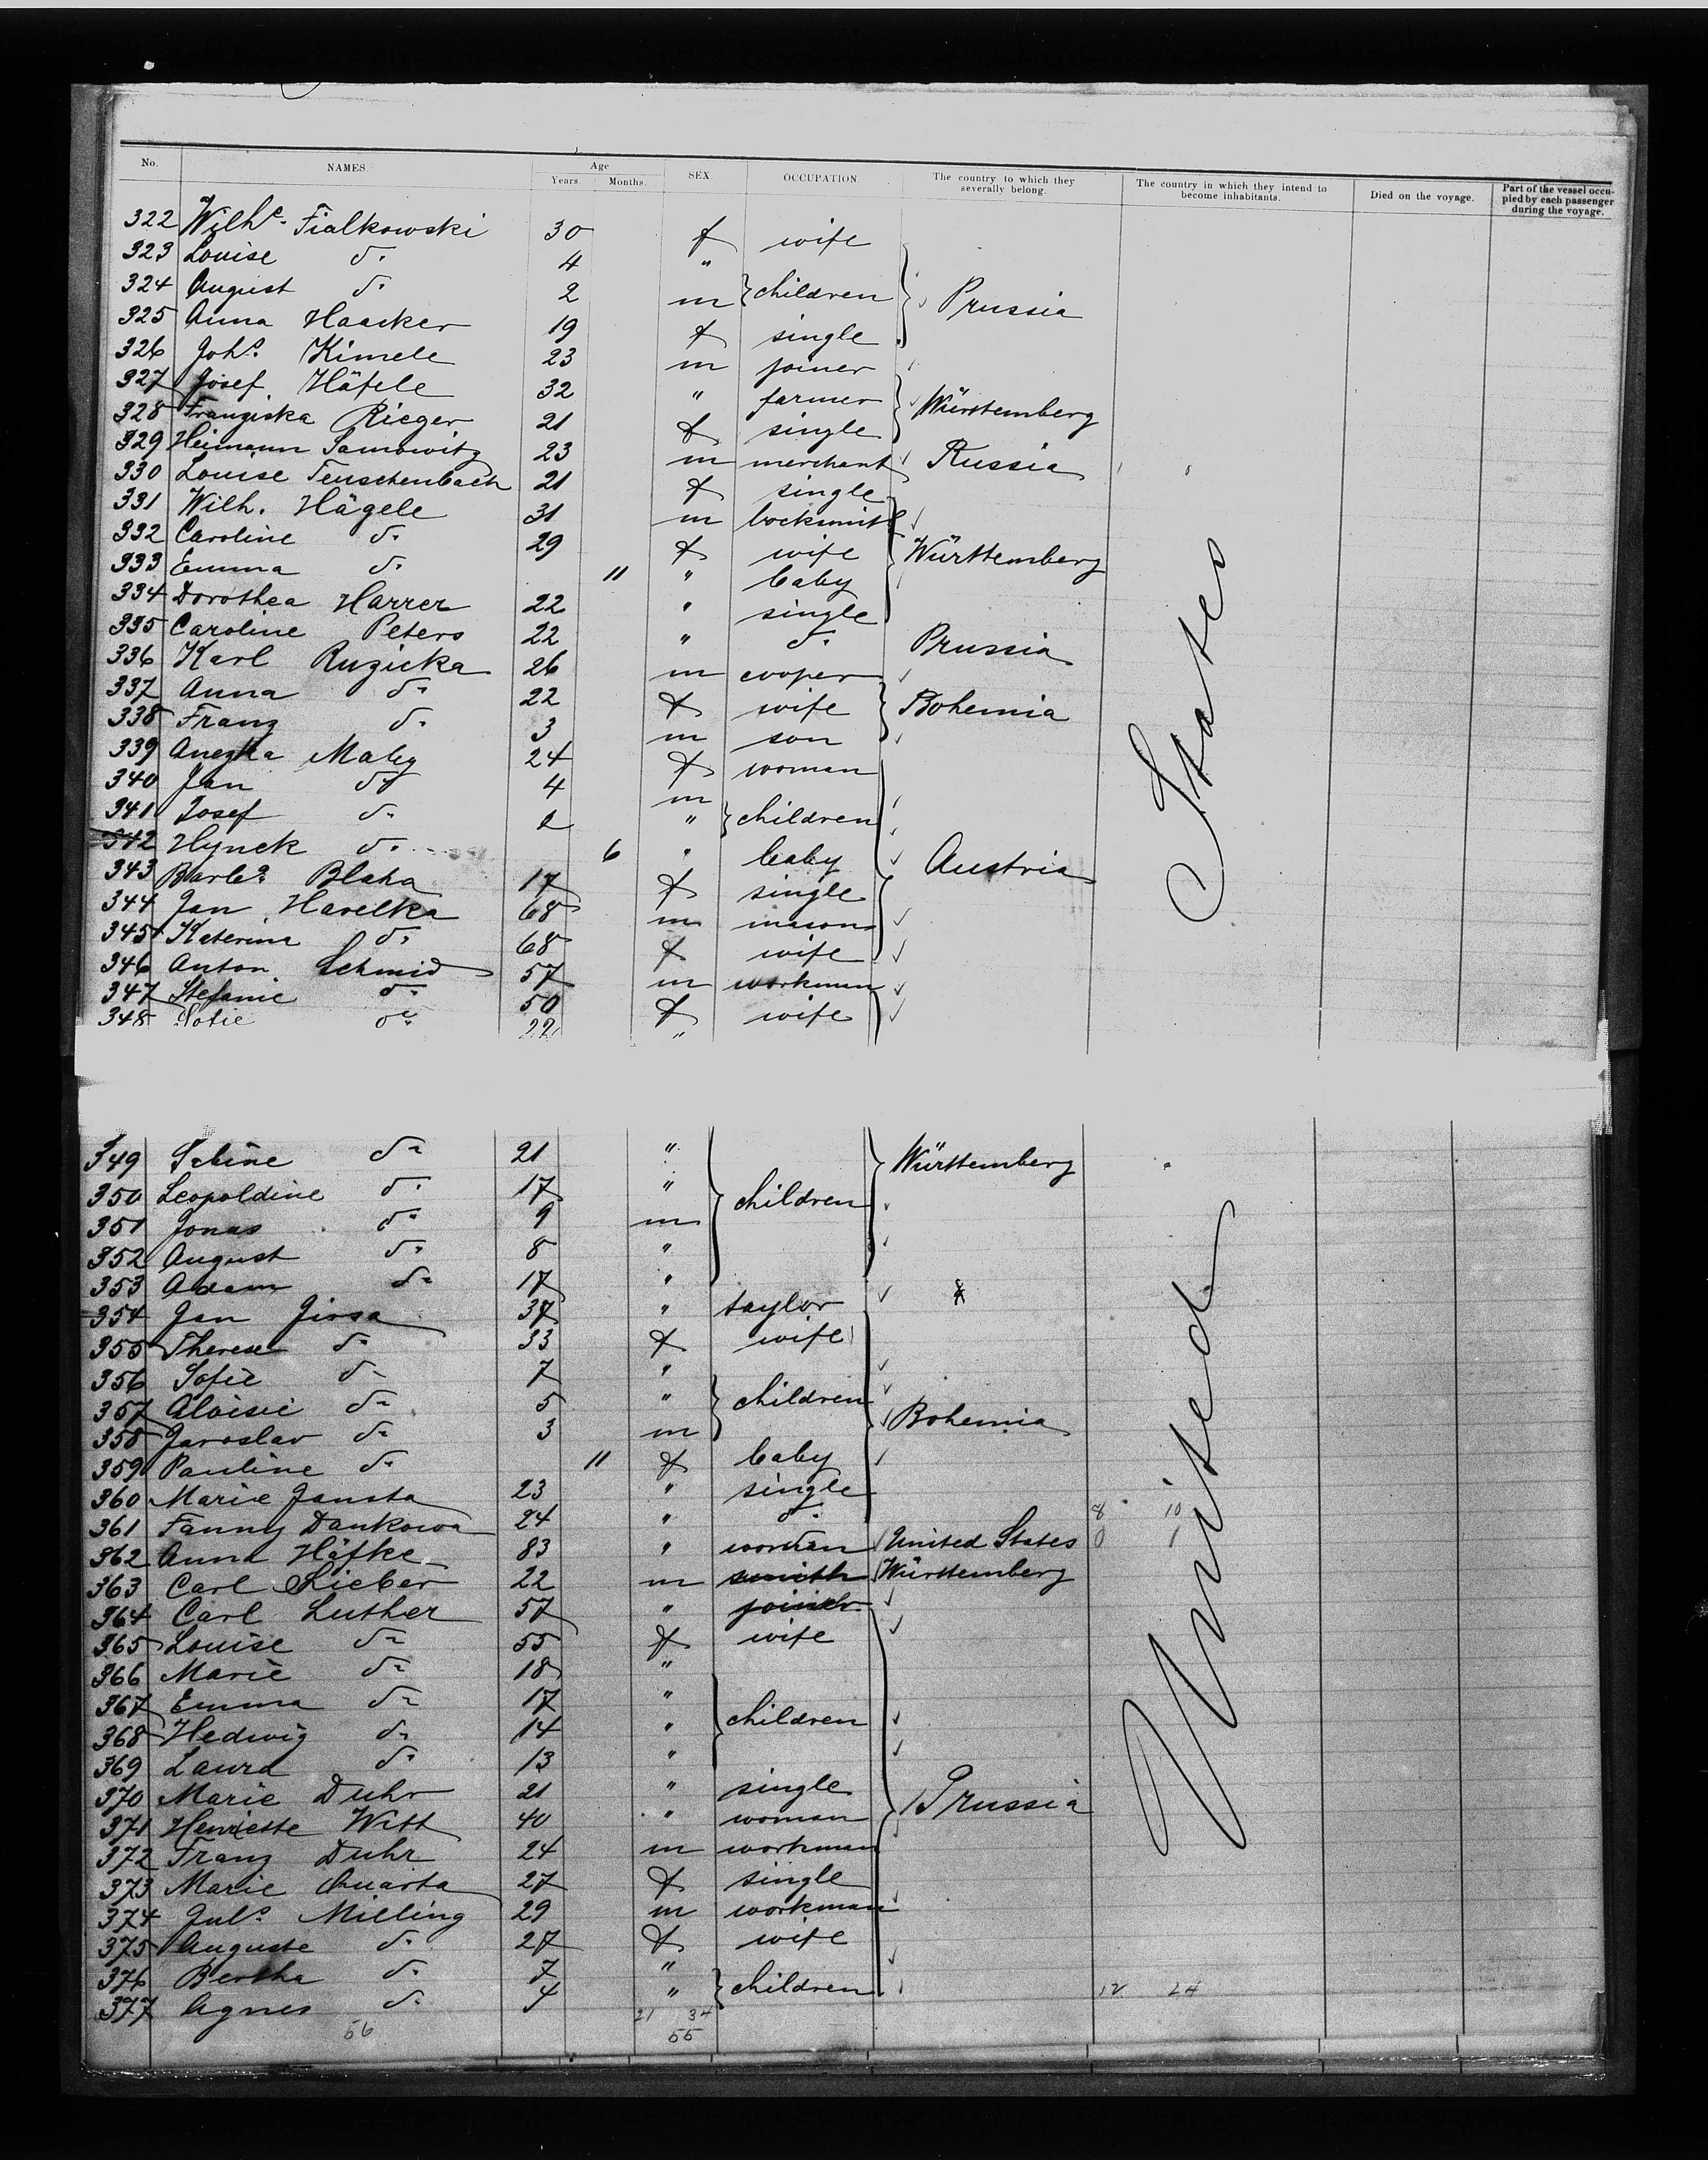 No. NAMES Age Years. Months. SEX. OCCUPATION The country to which they severally belong. The country in which they intend to become inhabitants. Died on the voyage. Part of the vessel occupied by each passenger during the voyage.
322 Wilhe. Fialkowski 30 f wife
323 Louise do. 4 "
324 August do. 2 m children Prussia
325 Anna Haacker 19 f single
326 Johs. Kimele 23 m joiner
327 Josef Häfele 32 " farmer Württemberg
328 Franziska Rieger 21 f single
329 Heimann Samowitz 23 m merchant Russia
330 Louise Teuschenbach 21 f single
331 Wilh. Hägele 31 m locksmith
332 Caroline do. 29 f wife Württemberg
333 Emma do. 11 " baby
334 Dorothea Harrer 22 " single
335 Caroline Peters 22 " do. Prussia
336 Karl Ruzicka 26 m cooper
337 Anna do. 22 f wife Bohemia
338 Franz do. 3 m son
339 Anezka Maly 24 f woman
340 Jan do. 4 m
341 Josef do. 2 " children
342 Hynek do. 6 " baby Austria
343 Barba. Blaha 17 f single
344 Jan Havelka 68 m mason
345 Katerina do. 68 f wife
346 Anton Schmid 57 m workman
347 Stefanie do. 50 f wife
348 Sofie do. 22 "
349 Sabine do. 21 " Württemberg
350 Leopoldine do. 17 " children
351 Jonas do. 9 m
352 August do. 8 "
353 Adam do. 17 "
354 Jan Jirsa 37 " taylor
355 Therese do. 33 f wife
356 Sofie do. 7 "
357 Aloisie do. 5 " children Bohemia
358 Jaroslav do. 3 m
359 Pauline do. 11 f baby
360 Marie Jansta 23 " single
361 Fanny Dankowa 24 " do. 8 10
362 Anna Höfke 83 " woman United States 0 1
363 Carl Lieber 22 m smith Württemberg
364 Carl Luther 57 " joiner
365 Louise do. 55 f wife
366 Marie do. 18 "
367 Emma do. 17 "
368 Hedwig do. 14 " children
369 Laura do. 13 "
370 Marie Duhr 21 " single Prussia
371 Henriette Witt 40 " woman
372 Franz Duhr 24 m workman
373 Marie Quarta 27 f single
374 Juls. Milling 29 m workman
375 Auguste do. 27 f wife
376 Bertha do. 7 "
377 Agnes do. 4 " children 12 24
56 21 34
55
United States